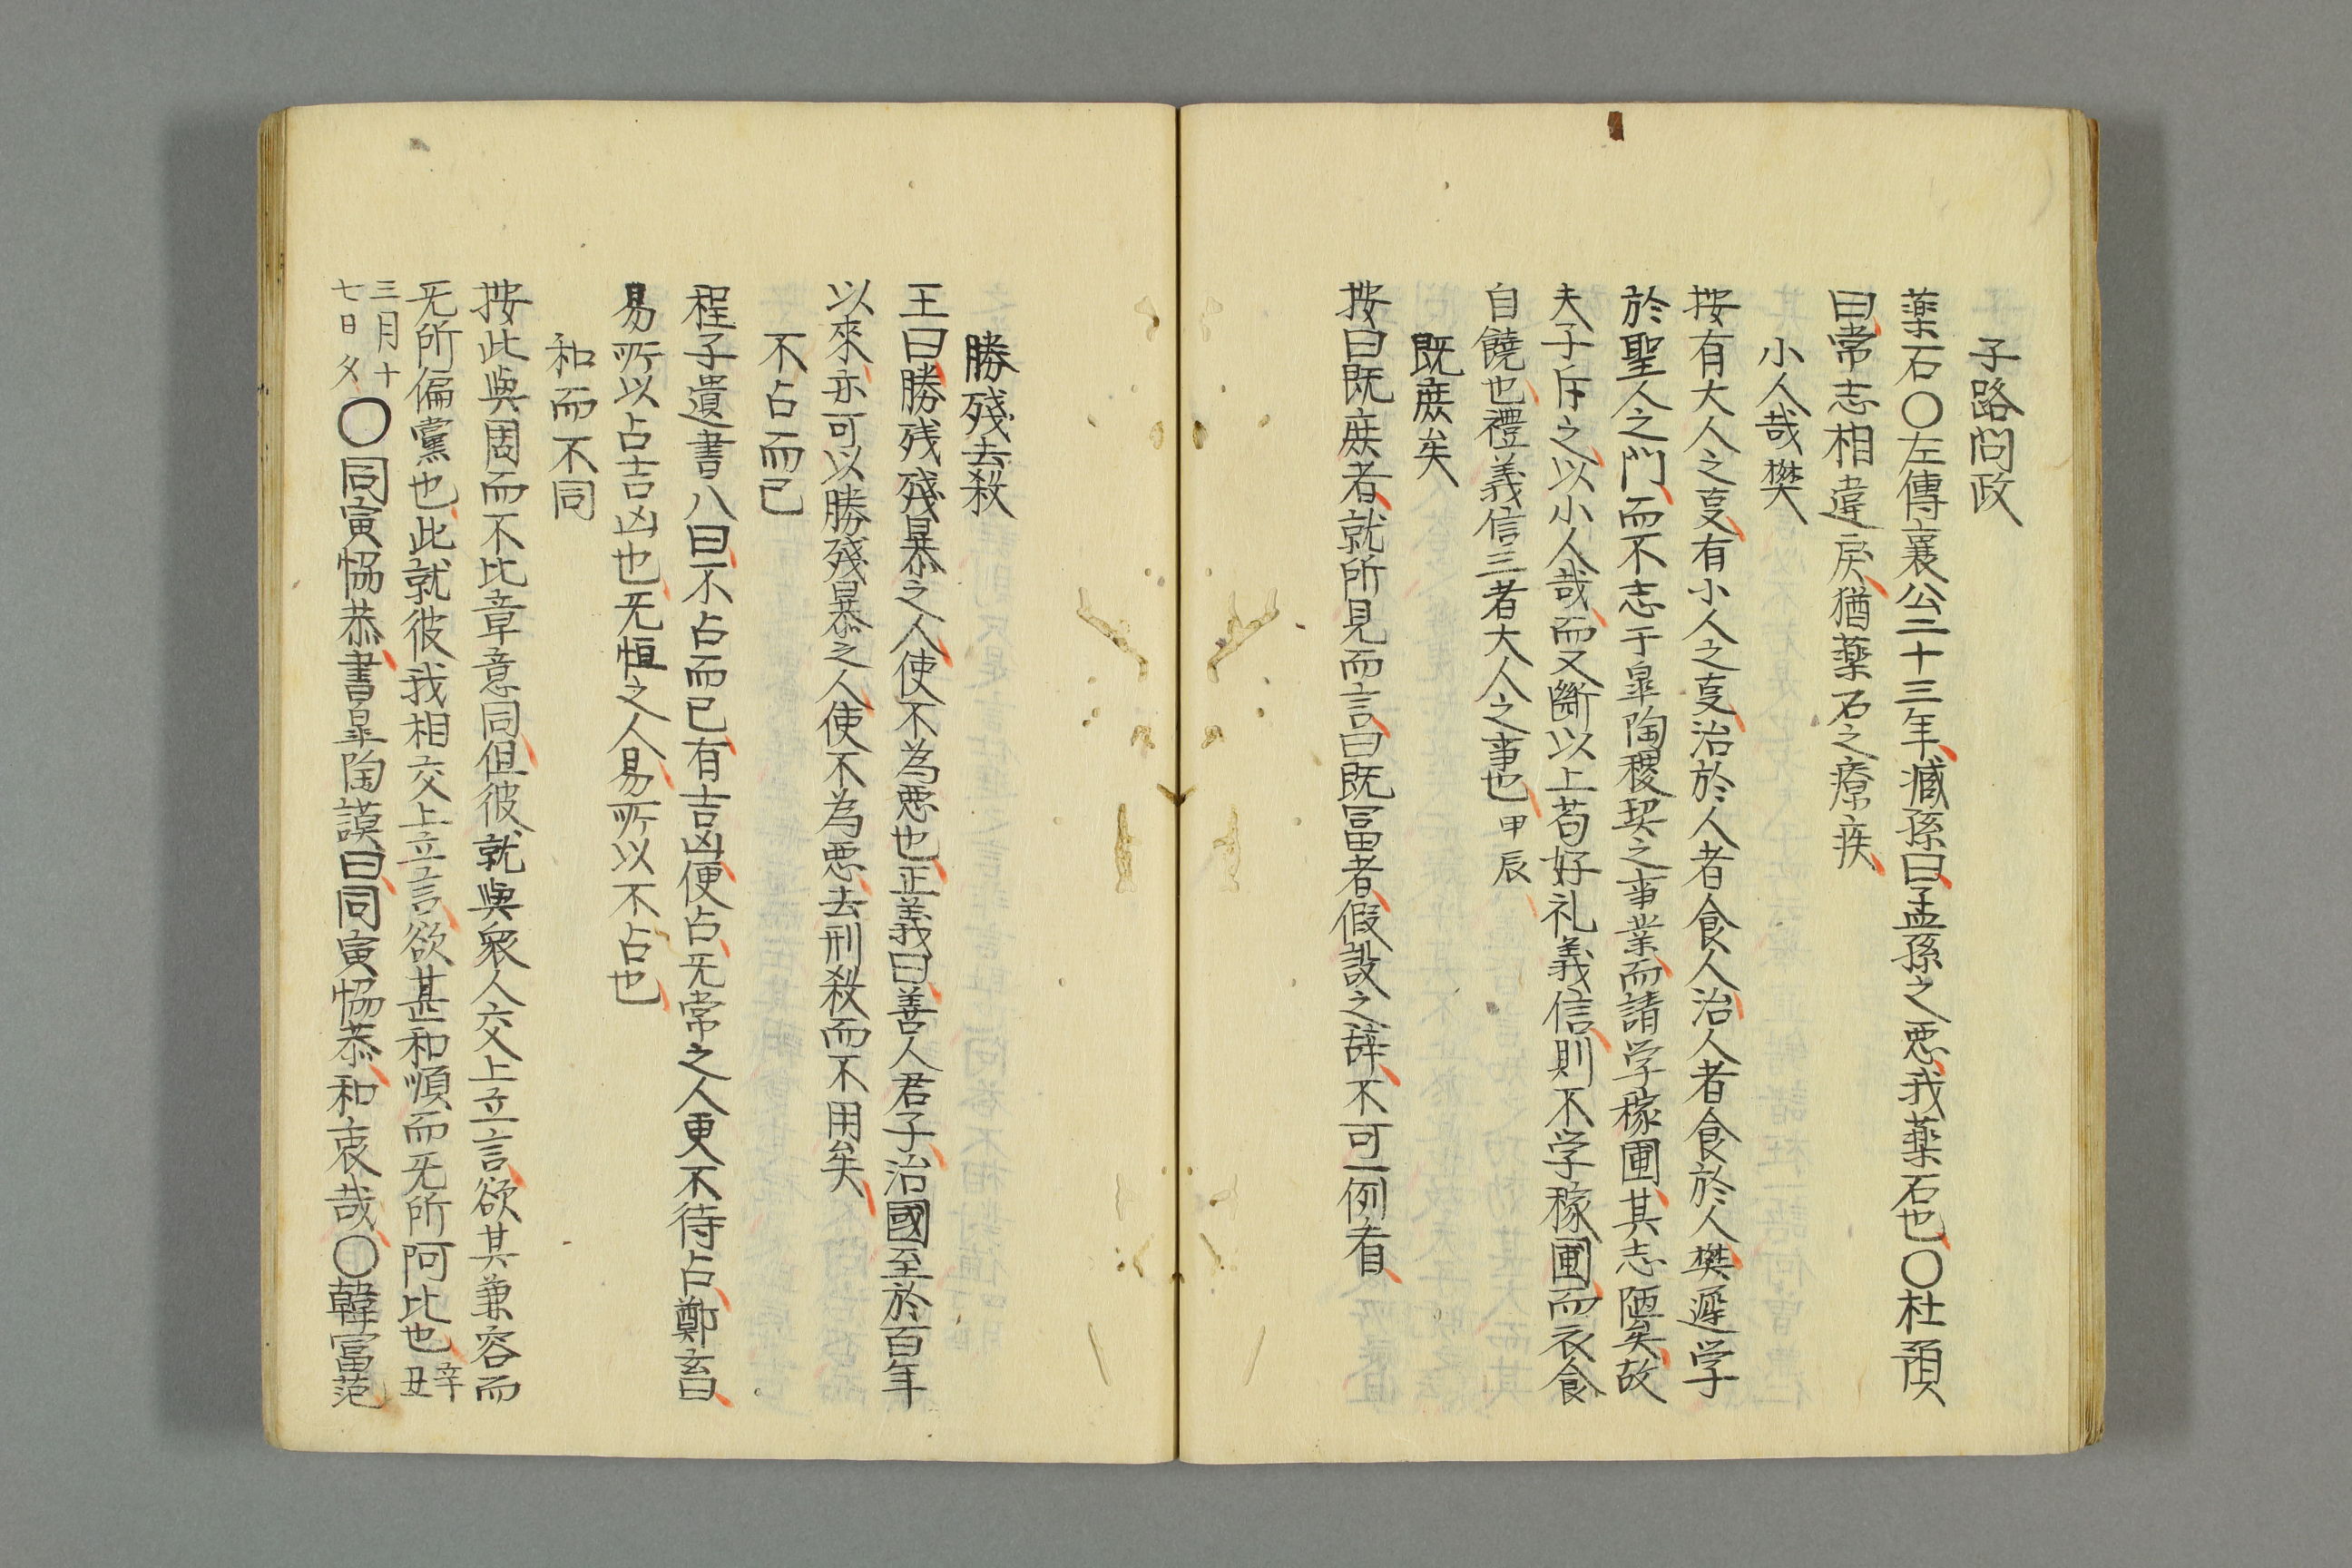 子路問政
藥石〇左傳襄公二十三年臧孫曰孟孫之悪我藥石也〇杜預
曰常志相違戻猶藥石之療疾
小人哉樊
按有大人之㕝有小人之㕝治於人者食人治人者食於人樊遲学
於聖人之門而不志于皐陶稷契之事業而請学稼圃其志陋矣故
夫子斥之以小人哉而又斷以上苟好礼義信則不学稼圃而衣食
自饒也禮義信三者大人之事也甲辰
既庻矣
按曰既庻者就所見而言曰既冨者假設之辞不可一例看
勝殘去殺
王曰勝残殘暴之人使不為悪也正義曰善人君子治國至於百年
以來亦可以勝殘暴之人使不為悪去刑殺而不用矣
不占而已
程子遺書八曰不占而已有吉凶便占无常之人更不待占鄭玄曰
易所以占吉凶也无恒之人易所以不占也
和而不同
按此與周而不比章意同但彼就與衆人交上立言欲其兼容而
无所偏黨也此就彼我相交上立言欲其和順而无所阿比也辛丑
三月十七日夕〇同寅恊恭書皐陶謨曰同寅恊恭和衷哉〇韓富范